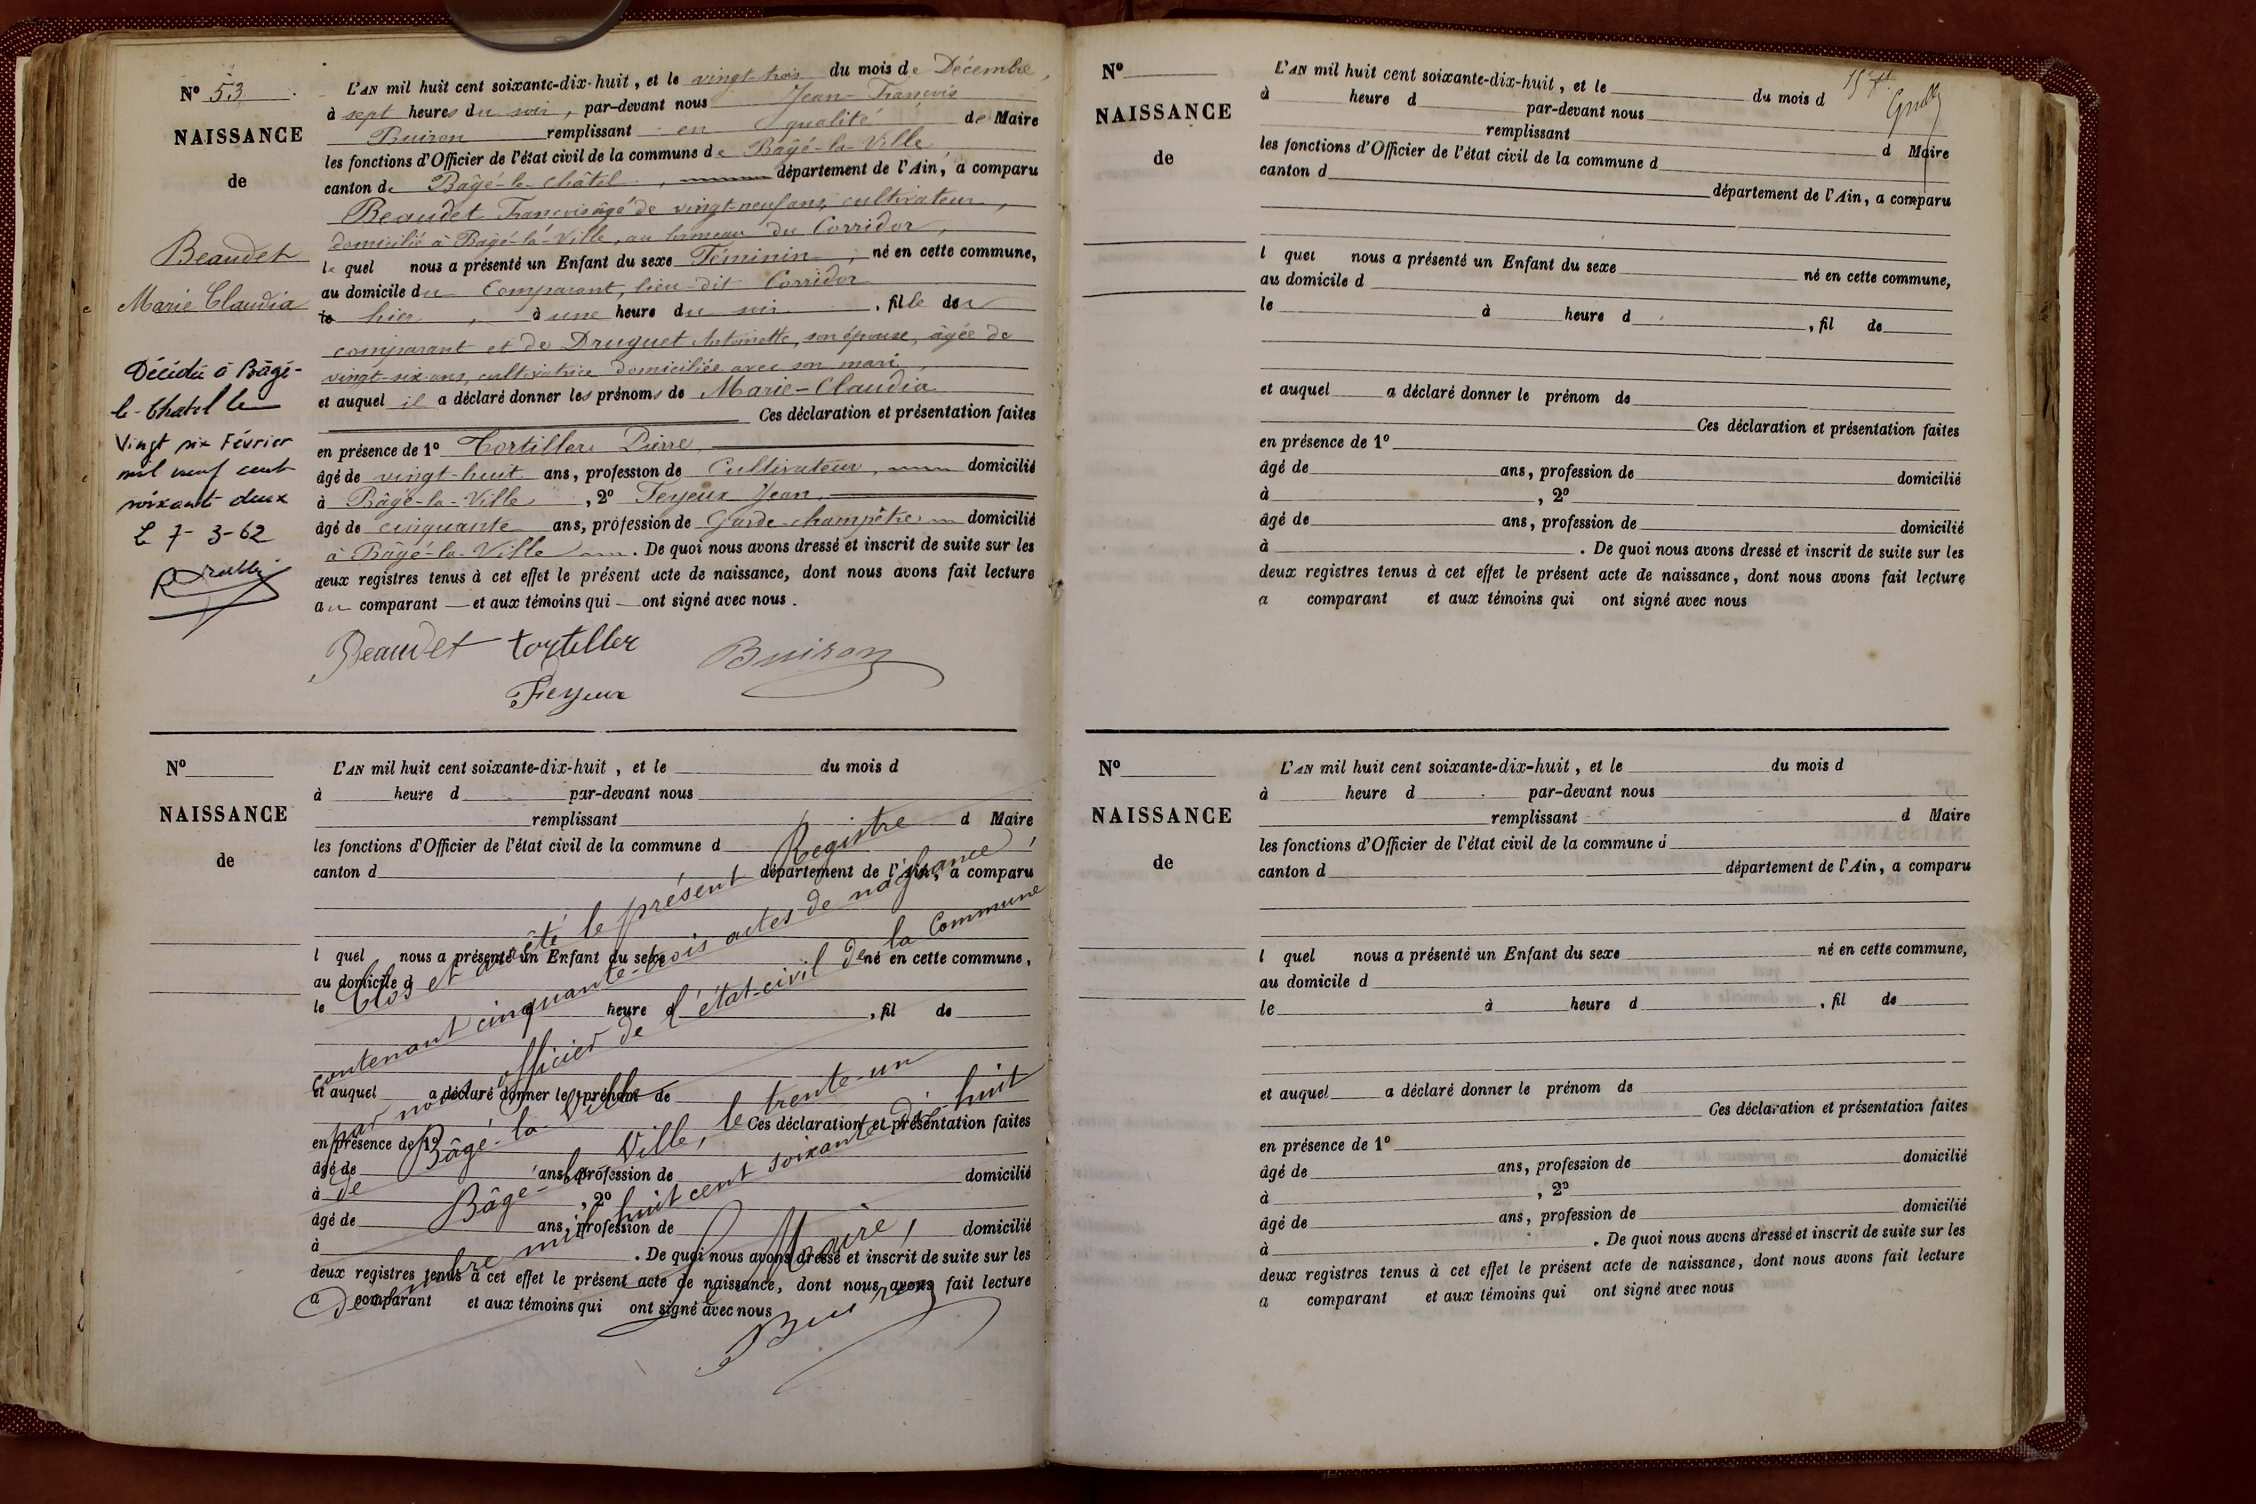 N° 53
NAISSANCE
de
Beaudet
Marie Claudia
Décédée à Bâgé-
le-Chatel le
Vingt six Février
mil neuf cent
soixante deux
Le 7-3-62
L'AN mil huit cent soixante-dix-huit, et le vingt-trois du mois de Décembre,
à sept heures du soir, par-devant nous Jean-François
Buiron remplissant en qualité de Maire
les fonctions d'Officier de l'état civil de la commune de Bâgé-la-Ville,
canton de Bâgé-le-Châtel, département de l'Ain, a comparu
Beaudet François âgé de vingt-neuf ans, cultivateur,
domicilié à Bâgé-la-Ville, au hameau du Corridor,
lequel nous a présenté un Enfant du sexe Féminin, né en cette commune,
au domicile du Comparant, lieu-dit Corridor
le hier, à une heure du soir, fille de du
comparant et de Druguet Antoinette, son épouse, âgée de
vingt-six ans, cultivatrice domiciliée avec son mari,
et auquel il a déclaré donner les prénoms de Marie-Claudia
Ces déclaration et présentation faites
en présence de 1° Tortiller Pierre,
âgé de vingt-huit ans, profession de Cultivateur, domicilié
à Bâgé-la-Ville, 2° Feyeux Jean,
âgé de cinquante ans, profession de Garde-champêtre domicilié
à Bâgé-la-Ville. De quoi nous avons dressé et inscrit de suite sur les
deux registres tenus à cet effet le présent acte de naissance, dont nous avons fait lecture
au comparant et aux témoins qui ont signé avec nous.
Beaudet tortiller Buiron
Feyeux
N°
NAISSANCE
de
L'AN mil huit cent soixante-dix-huit, et le du mois d
à heure d par-devant nous
remplissant d Maire
les fonctions d'Officier de l'état civil de la commune d
canton d département de l'Ain, a comparu
l quel nous a présenté un Enfant du sexe né en cette commune,
au domicile d
le à heure d , fil de
et auquel a déclaré donner le prénom de
Ces déclaration et présentation faites
en présence de 1°
âgé de ans, profession de domicilié
à , 2°
âgé de ans, profession de domicilié
à . De quoi nous avons dressé et inscrit de suite sur les
deux registres tenus à cet effet le présent acte de naissance, dont nous avons fait lecture
a comparant et aux témoins qui ont signé avec nous
Clos et arrêté le présent Registre
contenant cinquante-trois actes de naissance,
par nous officier de l'état-civil de la Commune
de Bâgé-la-Ville
Bâgé-la-Ville, le trente-un
décembre mil huit cent soixante-dix-huit
Le Maire,
Buiron
N°
NAISSANCE
de
L'AN mil huit cent soixante-dix-huit, et le du mois d
à heure d par-devant nous
remplissant d Maire
les fonctions d'Officier de l'état civil de la commune d
canton d département de l'Ain, a comparu
l quel nous a présenté un Enfant du sexe né en cette commune,
au domicile d
le à heure d , fil de
et auquel a déclaré donner le prénom de
Ces déclaration et présentation faites
en présence de 1°
âgé de ans, profession de domicilié
à , 2°
âgé de ans, profession de domicilié
à . De quoi nous avons dressé et inscrit de suite sur les
deux registres tenus à cet effet le présent acte de naissance, dont nous avons fait lecture
a comparant et aux témoins qui ont signé avec nous
N°
NAISSANCE
de
L'AN mil huit cent soixante-dix-huit, et le du mois d
à heure d par-devant nous
remplissant d Maire
les fonctions d'Officier de l'état civil de la commune d
canton d département de l'Ain, a comparu
l quel nous a présenté un Enfant du sexe né en cette commune,
au domicile d
le à heure d , fil de
et auquel a déclaré donner le prénom de
Ces déclaration et présentation faites
en présence de 1°
âgé de ans, profession de domicilié
à , 2°
âgé de ans, profession de domicilié
à . De quoi nous avons dressé et inscrit de suite sur les
deux registres tenus à cet effet le présent acte de naissance, dont nous avons fait lecture
a comparant et aux témoins qui ont signé avec nous